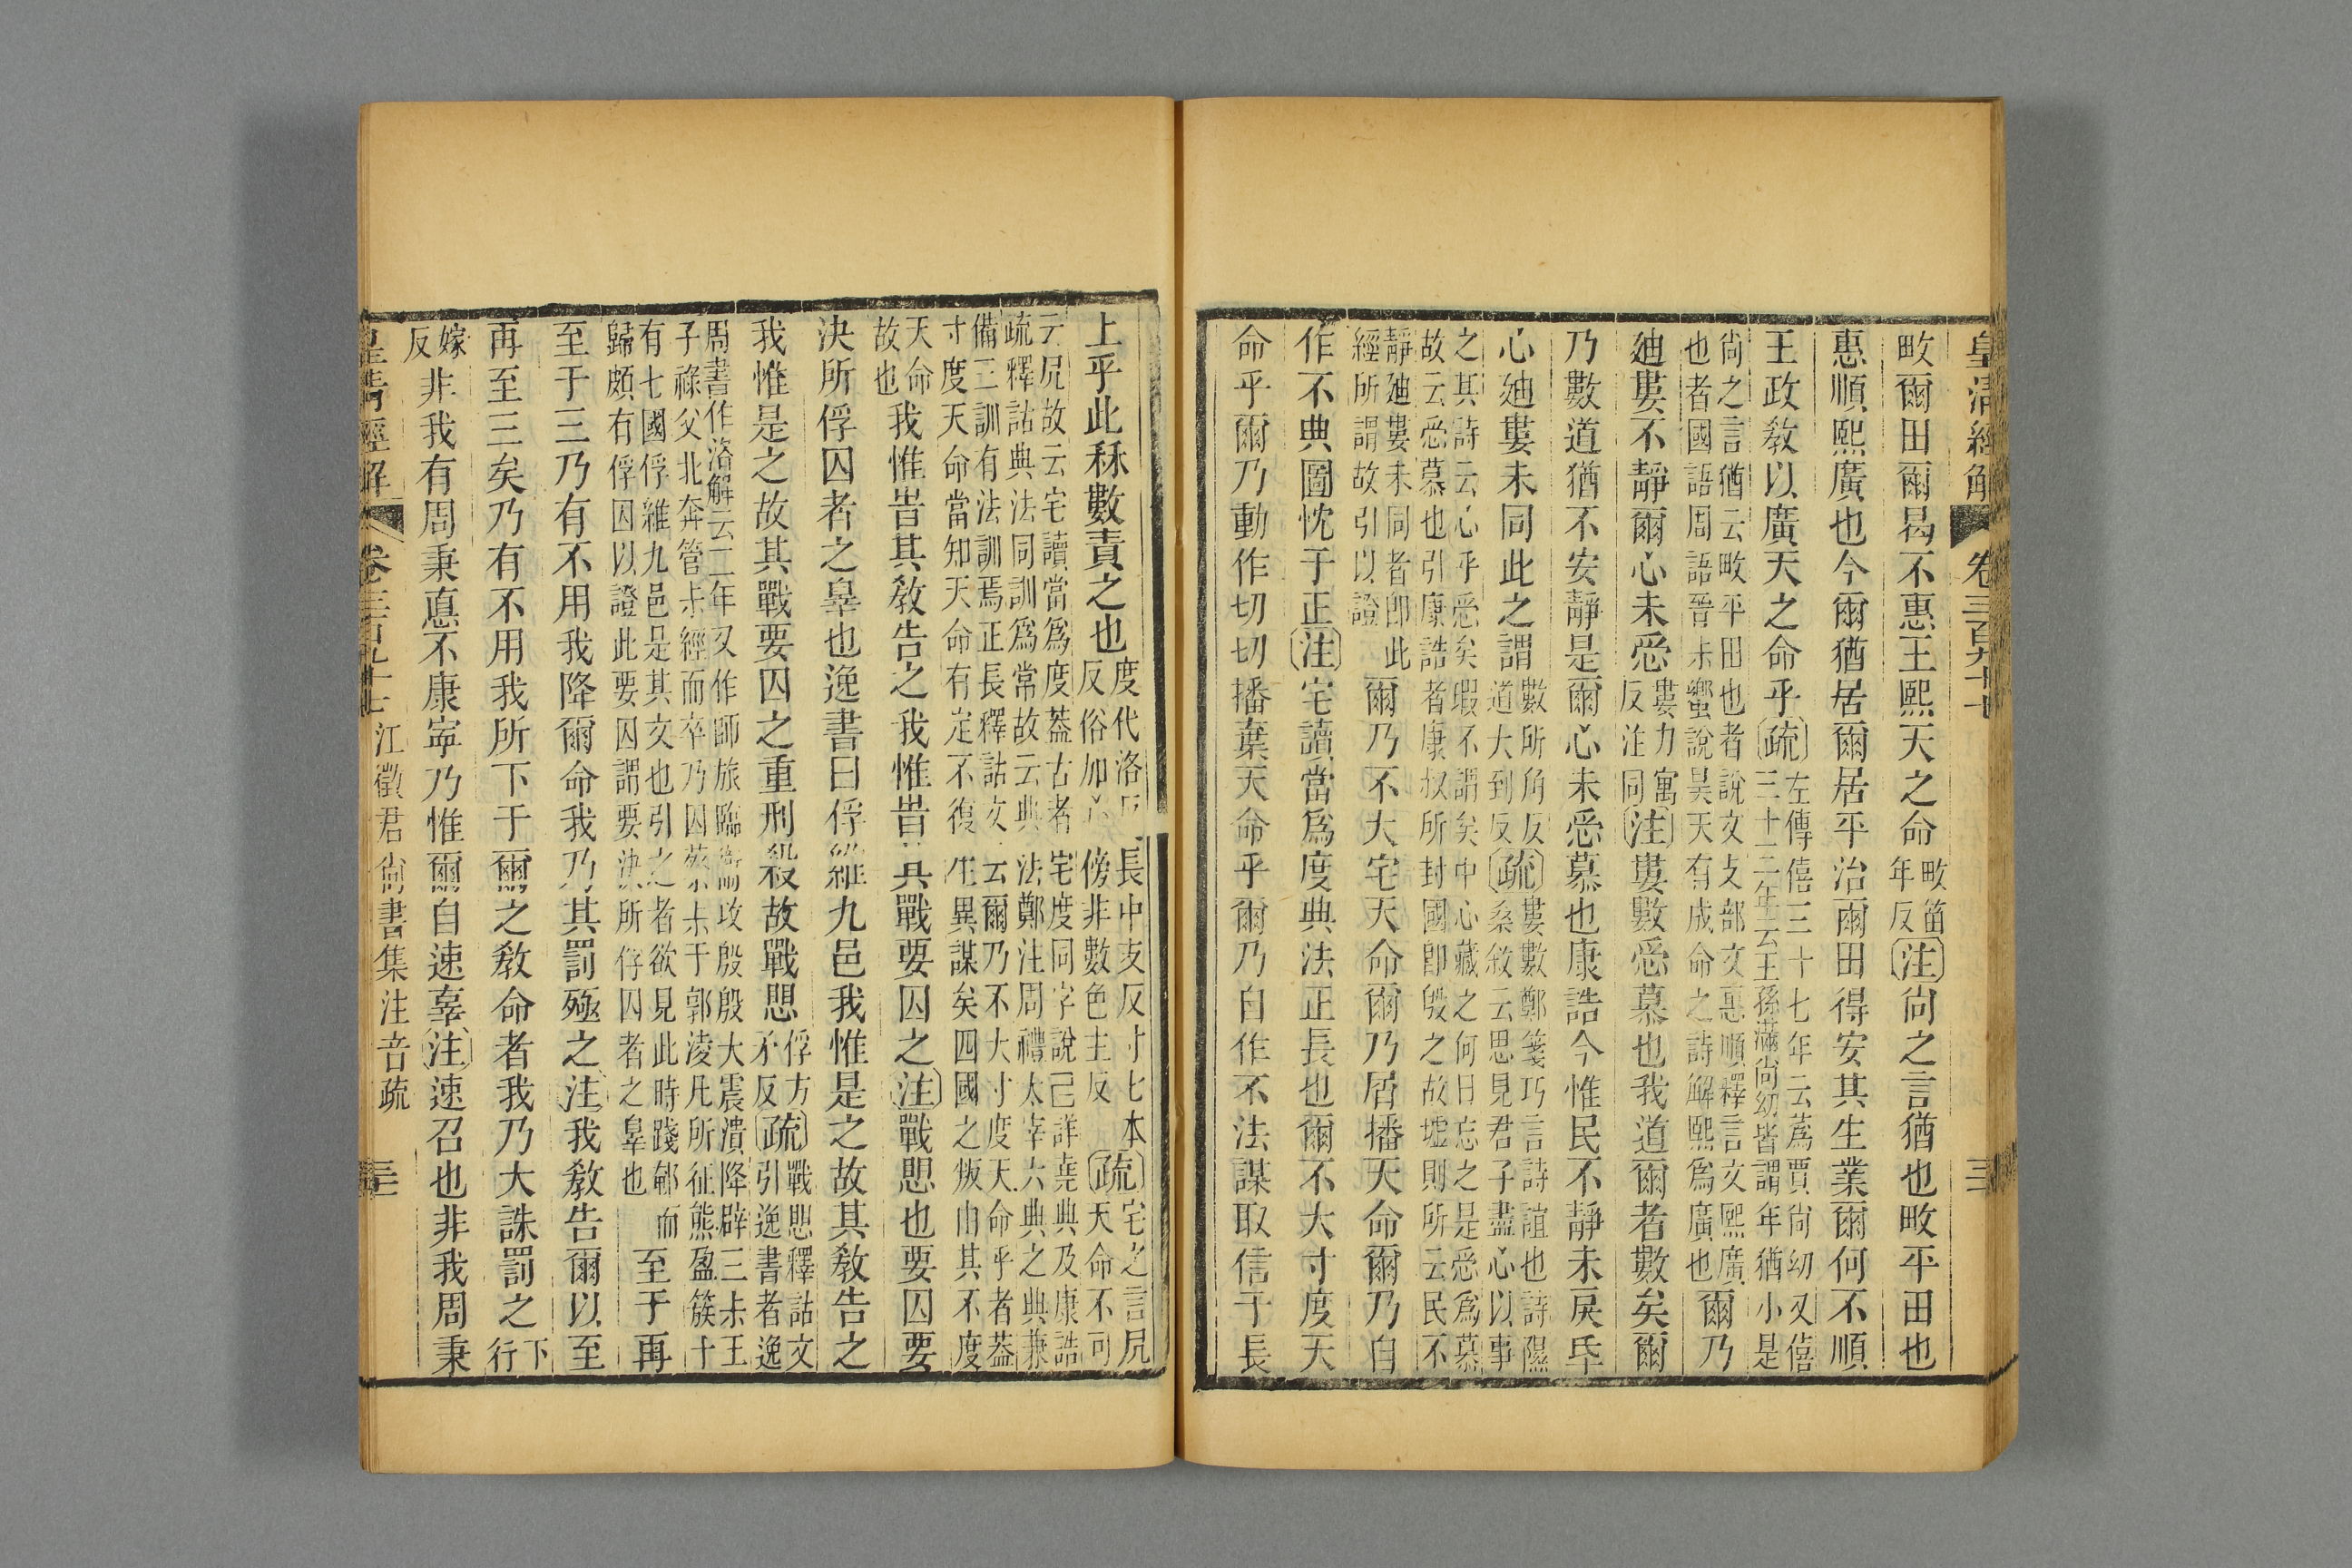 皇清經解 卷三百九十七 三
畋爾田爾曷不惠王熙天之命畋笛年反注尙之言猶也畋平田也
惠順熙廣也今爾猶居爾居平治爾田得安其生業爾何不順
王政敎以廣天之命乎疏左傳僖三十七年云蒍賈尙幼又僖三十三年云王孫滿尙幼皆謂年猶小是
尙之言猶云畋平田也者說文攴部文惠順釋言文熙廣也者國語周語晉未嚮說昊天有成命之詩解熙爲廣也爾乃
廸婁不靜爾心未㤅婁力寓反注同注婁數㤅慕也我道爾者數矣爾
乃數道猶不安靜是爾心未㤅慕也康誥今惟民不靜未戾氒
心廸婁未同此之謂數所角反道大到反疏婁數鄭箋巧言詩誼也詩隰桑敘云思見君子盡心以事
之其詩云心乎㤅矣暇不謂矣中心藏之何日忘之是㤅爲慕故云㤅慕也引康誥者康叔所封國卽殷之故墟則所云民不
靜廸婁未同者卽此經所謂故引以證爾乃不大宅天命爾乃屑播天命爾乃自
作不典圖忱于正注宅讀當爲度典法正長也爾不大寸度天
命乎爾乃動作切切播棄天命乎爾乃自作不法謀取信于長
上乎此秝數責之也度代洛反長中支反寸七本反俗加傍非數色主反疏宅之言凥天命不可
云凥故云宅讀當爲度葢古者宅度同字說已詳堯典及康誥疏釋詁典法同訓爲常故云典法鄭注周禮太宰六典之典兼
備二訓有法訓焉正長釋詁文云爾乃不大寸度天命乎者葢寸度天命當知天命有定不復生異謀矣四國之叛由其不度
天命故也我惟旹其敎告之我惟旹其戰要囚之注戰思也要囚要
決所俘囚者之辠也逸書曰俘維九邑我惟是之故其敎告之
我惟是之故其戰要囚之重刑殺故戰思俘方矛反疏戰思釋詁文引逸書者逸
周書作洛解云二年又作師旅臨衞攻殷殷大震潰降辟三未王子祿父北奔管未經而卒乃囚蔡未于郭淩凡所征熊盈簇十
有七國俘維九邑是其文也引之者欲見此時踐郼而歸頗有俘囚以證此要囚謂要決所俘囚者之辠也至于再
至于三乃有不用我降爾命我乃其罰殛之注我敎告爾以至
再至三矣乃有不用我所下于爾之敎命者我乃大誅罰之下行
嫁反非我有周秉悳不康寍乃惟爾自速辜注速召也非我周秉
皇清經解 卷三百九十七 江徵君尙書集注音疏 三